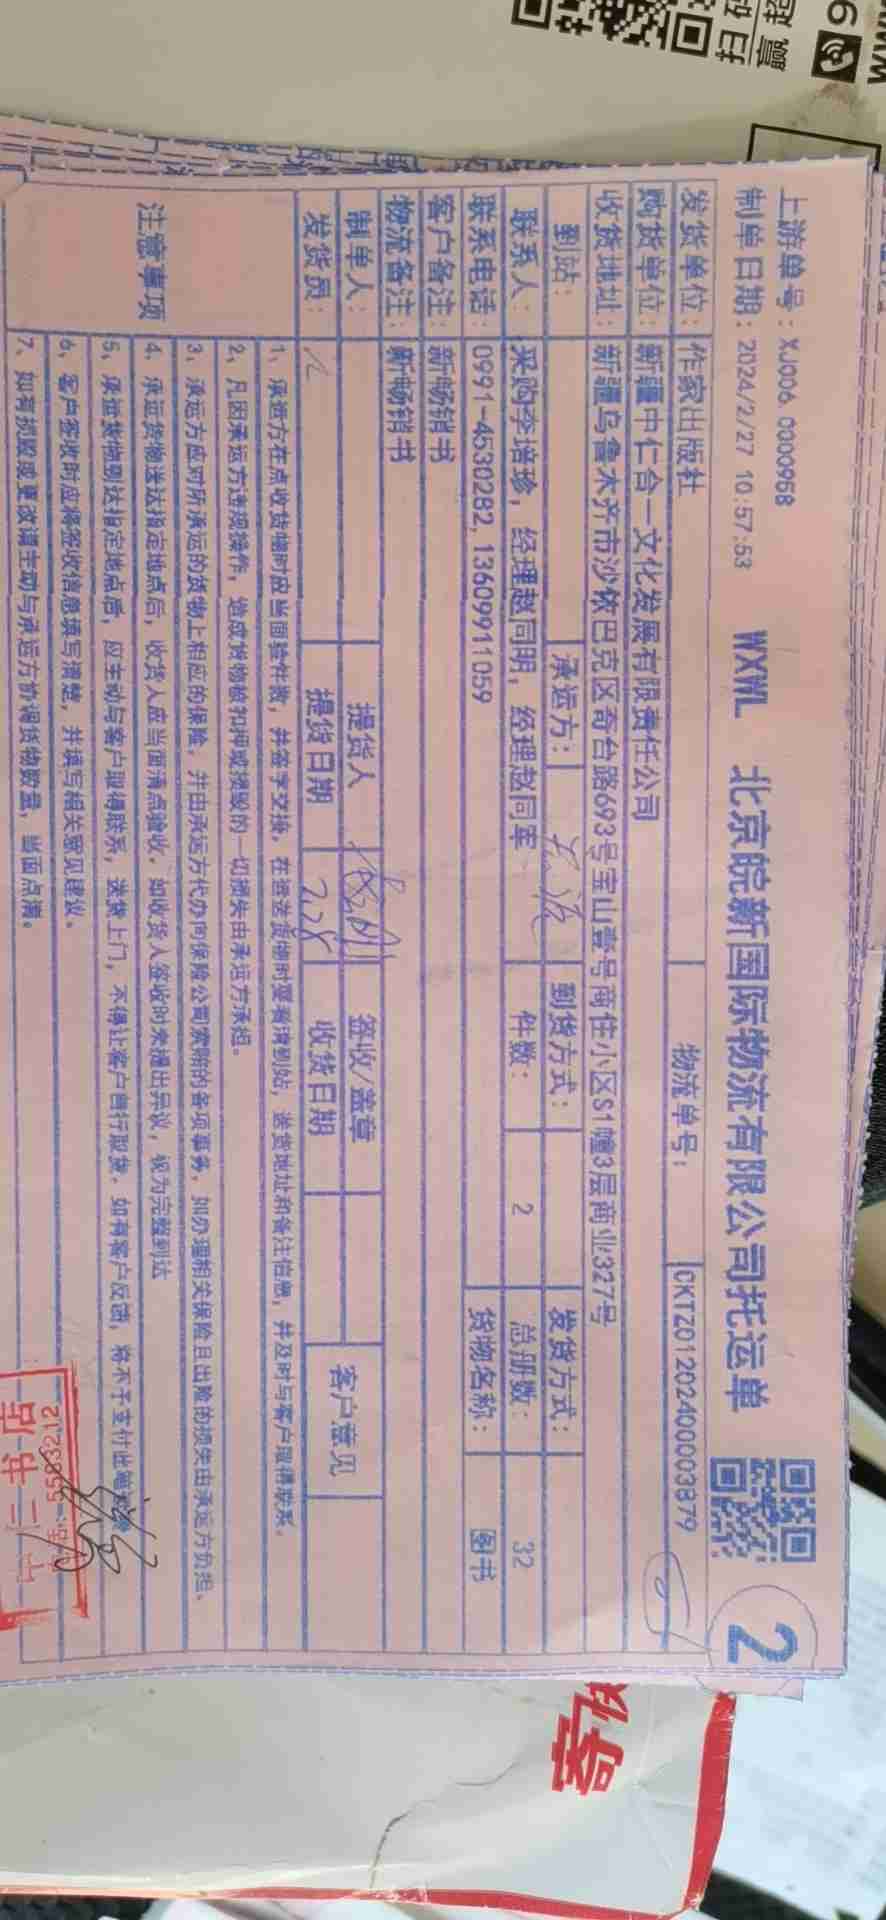 上游单号：XJ006.0000958
制单日期：2024/2/27 10:57:53 WXWL 北京皖新国际物流有限公司托运单 2
发货单位：作家出版社 物流单号： CKTZ01202400003879
购货单位：新疆中仁合一文化发展有限责任公司
收货地址：新疆乌鲁木齐市沙依巴克区奇台路693号宝山壹号商住小区S1幢3层商业327号
到站： 承运方： 到货方式： 发货方式：
联系人：采购李培珍，经理赵同明，经理赵同军 件数： 2 总册数： 32
联系电话：0991-4530282,13609911059 货物名称： 图书
客户备注：新畅销书
物流备注：新畅销书
制单人： 提货人 签收/盖章 客户意见
发货员： 提货日期 2.28 收货日期
注意事项
1、承运方在点收货物时应当面验件数，并签字交接，在运送货物时要看清到站，送货地址和备注信息，并及时与客户取得联系。
2、凡因承运方违规操作，造成货物被扣押或损毁的一切损失由承运方承担。
3、承运方应对所承运的货物上相应的保险，并由承运方代办向保险公司索赔的各项事务，如办理相关保险且出险的损失由承运方负担。
4、承运货物送达指定地点后，收货人应当面清点验收，如收货人签收时未提出异议，视为完整到达
5、承运货物到达指定地点后，应主动与客户取得联系，送货上门，不得让客户自行取货，如有客户反馈，将不予支付此笔
6、客户签收时应将签收信息填写清楚，并填写相关意见建议。
7、如有损毁或更改请主动与承运方协调货物数量，当面点清。
中仁书店
电话：5583212
扫码
赢超
9
寄